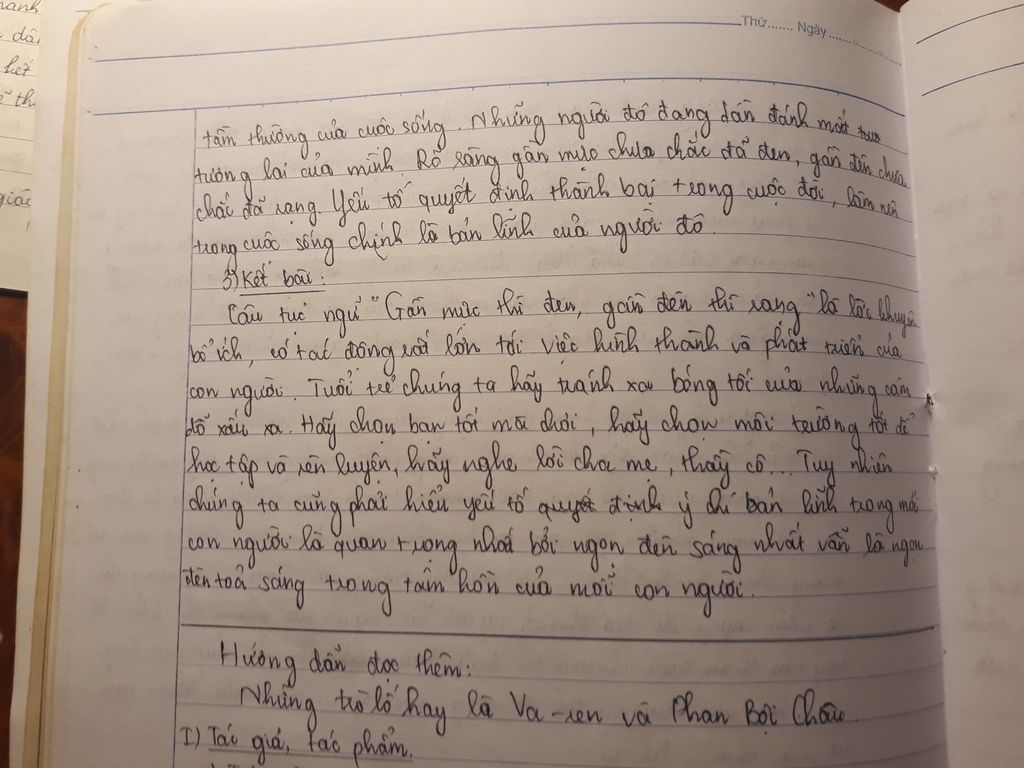 Thứ....... Ngày...............
tầm thường của cuộc sống. Những người đó đang dần đánh mất
tương lai của mình. Rõ ràng gần mực chưa chắc đã đen, gần đèn chưa
chắc đã rạng. Yếu tố quyết định thành bại trong cuộc đời, làm nên
trong cuộc sống chính là bản lĩnh của người đó.
3) Kết bài:
Câu tục ngữ "Gần mực thì đen, gần đèn thì rạng" là lời khuyên
bổ ích, có tác động rất lớn tới việc hình thành và phát triển của
con người. Tuổi trẻ chúng ta hãy tránh xa bóng tối của những cám
dỗ xấu xa. Hãy chọn bạn tốt mà chơi, hãy chọn môi trường tốt để
học tập và rèn luyện, hãy nghe lời cha mẹ, thầy cô... Tuy nhiên
chúng ta cũng phải hiểu yếu tố quyết định ý chí bản lĩnh trong mỗi
con người là quan trọng nhất bởi ngọn đèn sáng nhất vẫn là ngọn
đèn toả sáng trong tâm hồn của mỗi con người.
Hướng dẫn đọc thêm:
Những trò lố hay là Va-ren và Phan Bội Châu.
I) Tác giả, tác phẩm.